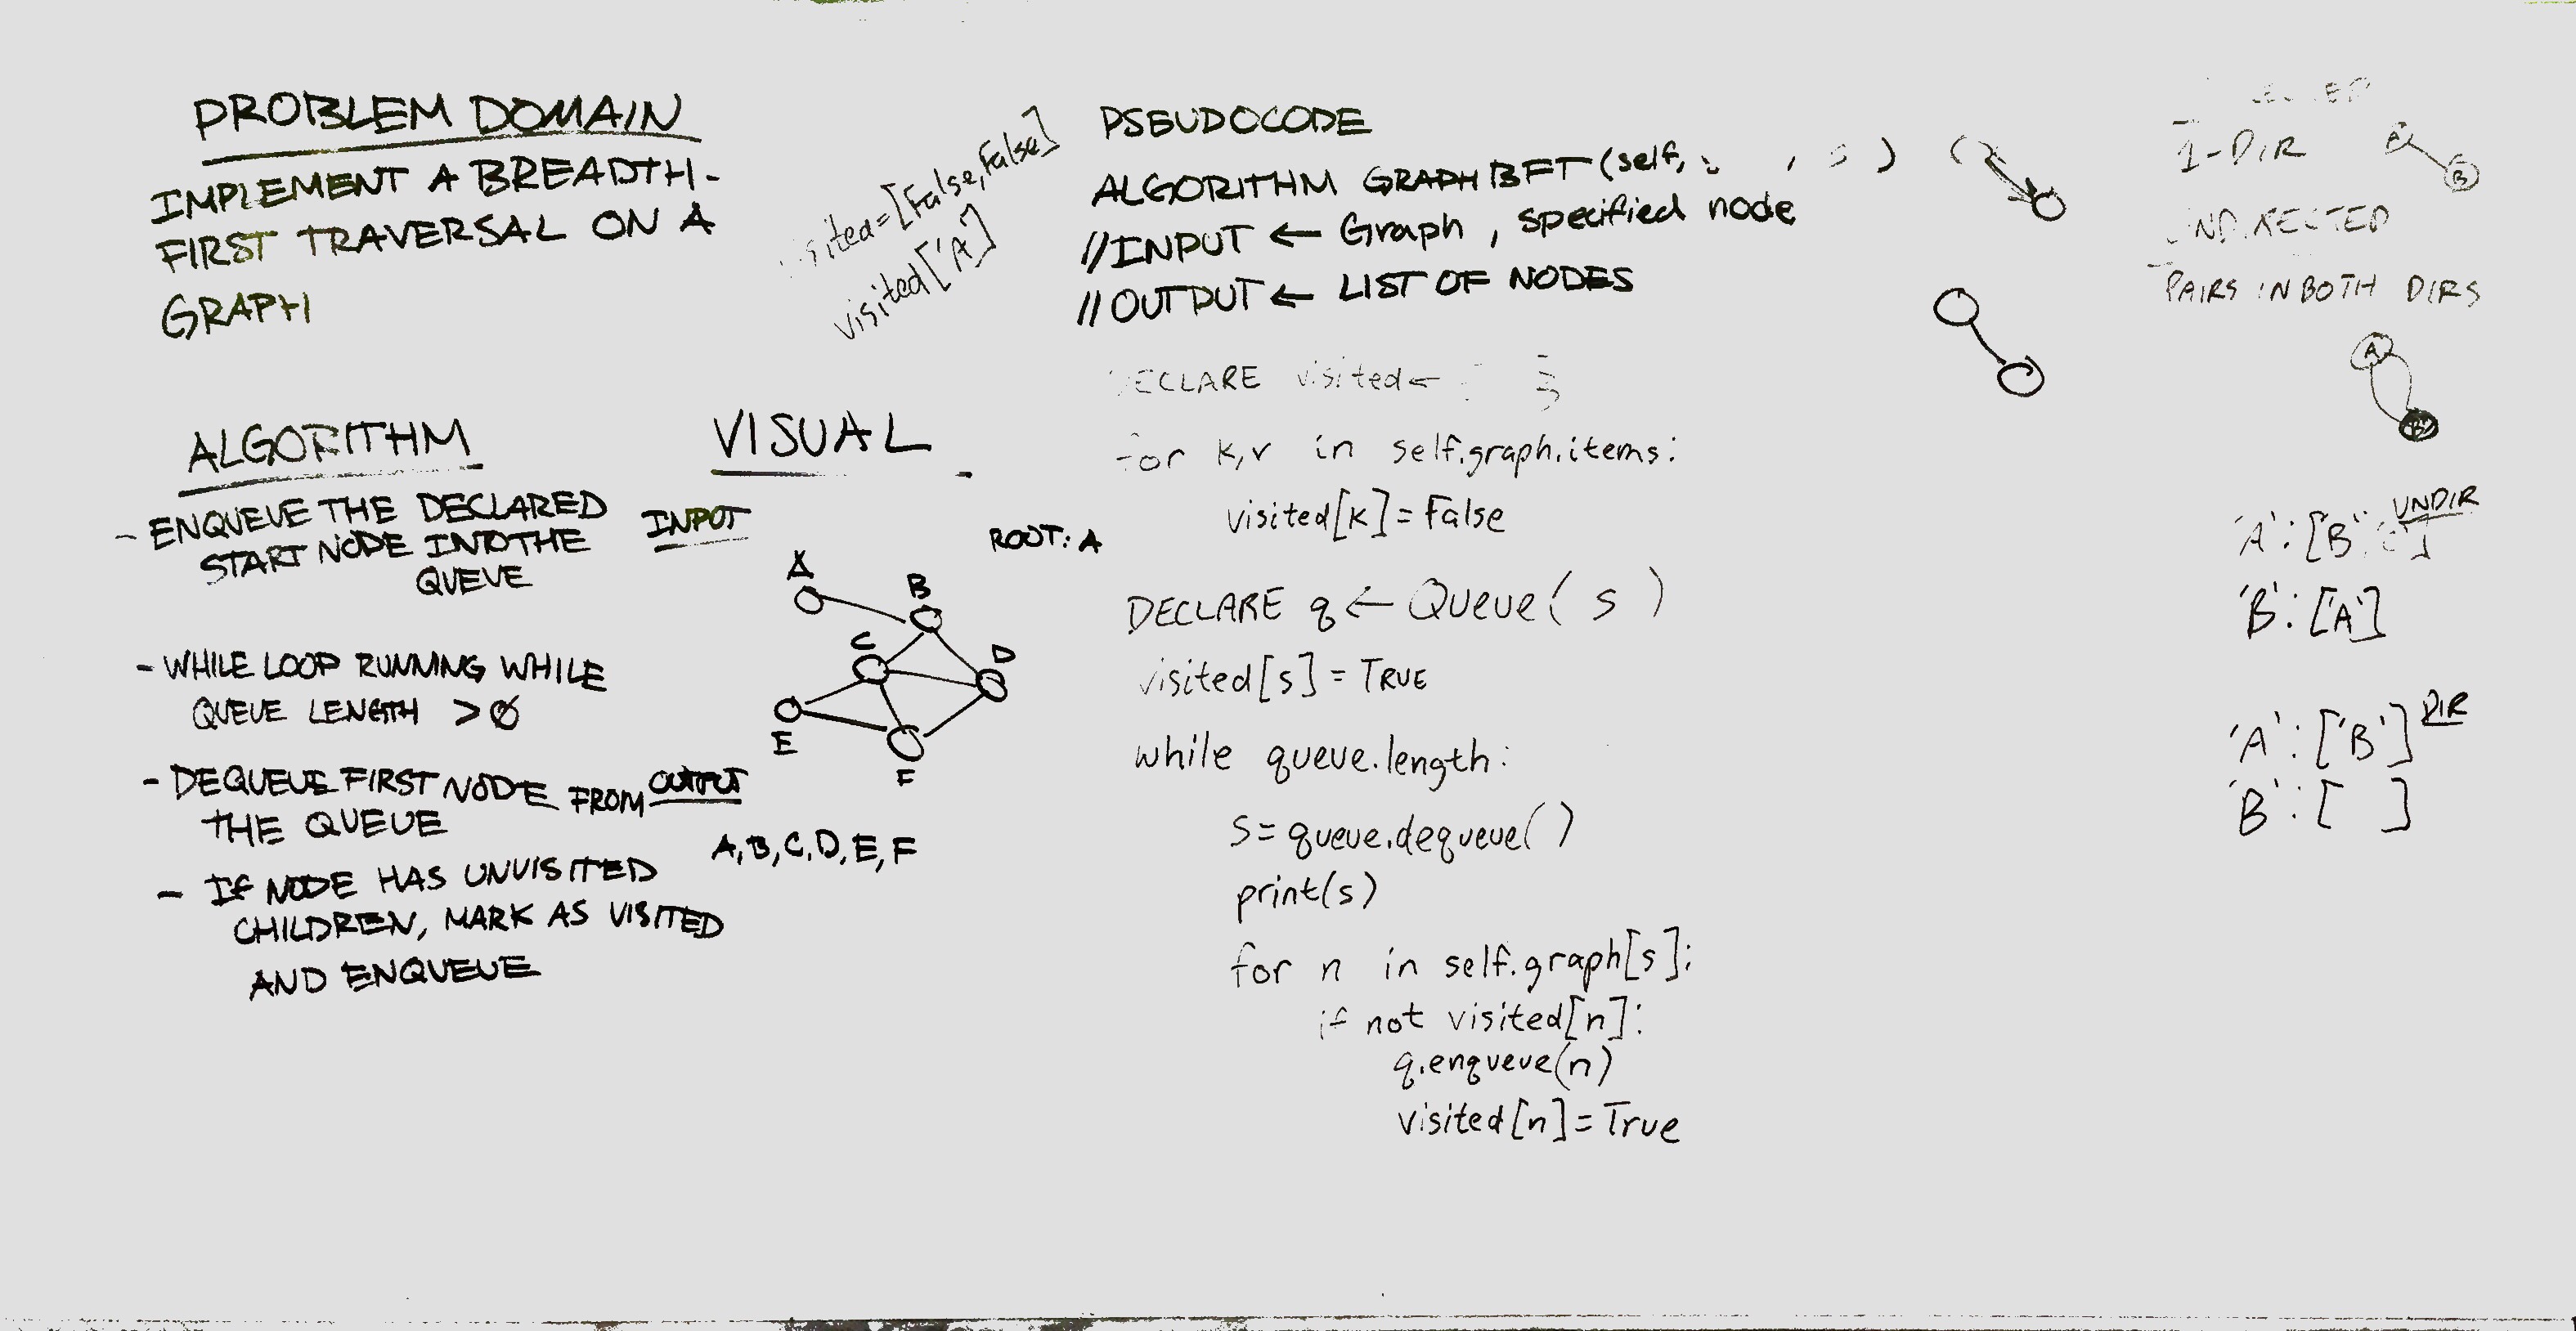 PROBLEM DOMAIN
IMPLEMENT A BREADTH-
FIRST TRAVERSAL ON A
GRAPH
visited=[False,False]
visited['A']
ALGORITHM
- ENQUEUE THE DECLARED
START NODE INTO THE
QUEUE
- WHILE LOOP RUNNING WHILE
QUEUE LENGTH > 0
- DEQUEUE FIRST NODE FROM
THE QUEUE
- IF NODE HAS UNVISITED
CHILDREN, MARK AS VISITED
AND ENQUEUE
VISUAL
INPUT
ROOT: A
A
B
C
D
E
F
OUTPUT
A, B, C, D, E, F
PSEUDOCODE
ALGORITHM GRAPH BFT (self, , s )
//INPUT ← Graph, specified node
//OUTPUT ← LIST OF NODES
DECLARE visited ←
for k,v in self.graph.items:
visited[k]=False
DECLARE q ← Queue( s )
visited[s] = TRUE
while queue.length:
s= queue.dequeue()
print(s)
for n in self.graph[s]:
if not visited[n]:
q.enqueue(n)
visited[n] = True
1-DIR
A
B
UNDIRECTED
PAIRS IN BOTH DIRS
A
B
UNDIR
'A': ['B'
'B': ['A']
DIR
'A': ['B']
'B': [ ]